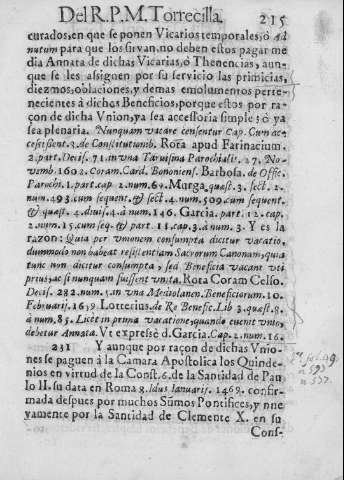 Del R.P.M. Torrecilla. 215
curados, en que se ponen Vicarios temporales, ò Ad
nutum para que los sirvan, no deben estos pagar me
dia Annata de dichas Vicarias, ò Thenencias, aun-
que se les assignen por su servicio las primicias,
diezmos, oblaciones, y demas emolumentos perte-
necientes à dichos Beneficios, porque estos por ra-
çon de dicha Vnion, ya sea accessoria simple; ò ya
sea plenaria. Nunquam vacare censentur Cap. Cum ac-
cessissent. 8. de Constitutionib. Rota apud Farinacium.
2. part. Decis. 71. in vna Taruisina Parochialis. 27. No-
vemb. 1602. Coram. Card. Bononiens. Barbosa. de Offic.
Paroch. 1. part. cap. 2. num. 64. Murga. quæst. 3. sect. 2.
num. 493. cum sequent. & sect. 4. num. 509. cum sequent.
& quæst. 4. divis. 4. à num. 146. Garcia. part. 12. cap.
2. num. 15. cum seq. & part. 11. cap. 3. à num. 3. Y es la
razon: Quia per vnionem consumpta dicitur vacatio,
dummodo non habeat resistentiam Sacrorum Canonum, quia
tunc non dicitur consumpta, sed Beneficia vacant vti
prius, ac si nunquam fuissent vnita. Rota Coram Celso.
Decis. 282. num. 5. in vna Mediolanen. Beneficiorum. 10.
Februarij. 1659. Lotterius. de Re Benefic. Lib 3. quæst. 8.
à num. 85. Licèt in prima vacatione, quando event vnio,
debetur Annata. Vt expressè d. Garcia. Cap. 2. num. 16.
231 Y aunque por raçon de dichas Vnio-
nes se paguen à la Camara Apostolica los Quinde-
nios en virtud de la Const. 6. de la Santidad de Pau
lo II. su data en Roma 8. Idus Ianuarij. 1469. confir-
mada despues por muchos Sũmos Pontifices, y nue
vamente por la Santidad de Clemente X. en su
Cons-
n 555
n 557.